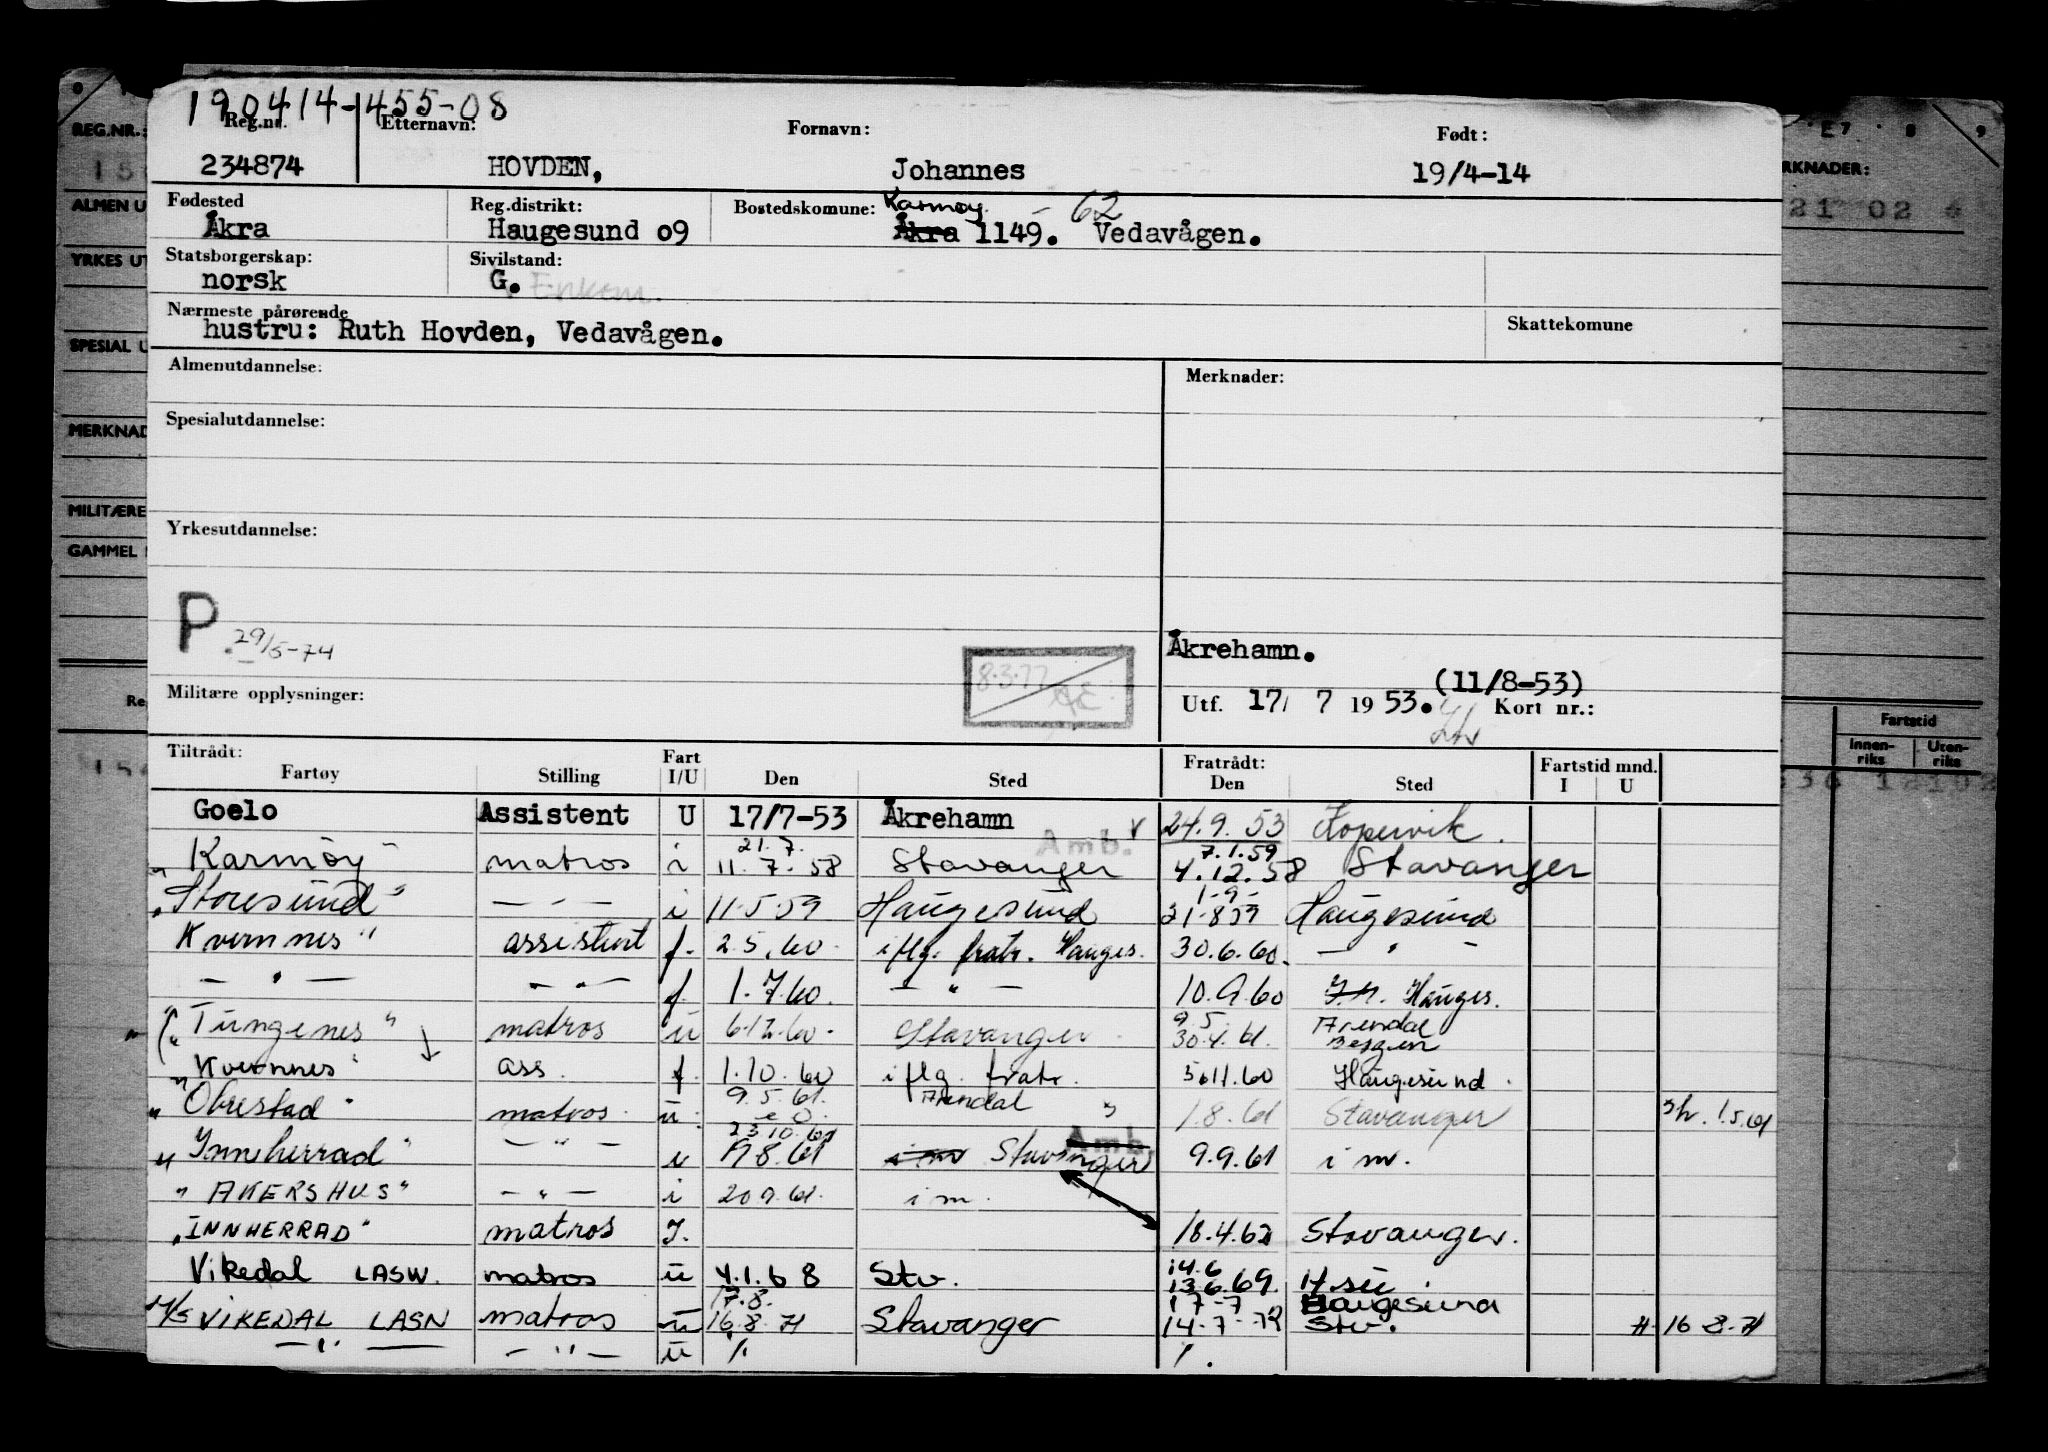 190414-455-08
Reg.nr. Etternavn: Fornavn: Født:
234874 HOVDEN, Johannes 19/4-14
Fødested Reg.distrikt: Bostedskomune: Karmøy - 62
Åkra Haugesund 09 Åkra 1149. Vedavågen.
Statsborgerskap: Sivilstand:
norsk G. Enkem.
Nærmeste pårørende Skattekomune
hustru: Ruth Hovden, Vedavågen.
Almenutdannelse: Merknader:
Spesialutdannelse:
Yrkesutdannelse:
P 29/5-74
Åkrehamn.
8.3.77 AE
(11/8-53)
Militære opplysninger: Utf. 17/ 7 1953. Kort nr.:
Tiltrådt: Fart Fratrådt: Fartstid mnd.
Fartøy Stilling I/U Den Sted Den Sted I U
Goelo Assistent U 17/7-53 Åkrehamn 24.9.53 Kopervik.
21.7. Amb. 7.1.59
Karmøy matros i 11.7.58 Stavanger 4.12.58 Stavanger
1-9-
"Storesund" — " — i 11.5.59 Haugesund 31-8 59 Haugesund
Kvernnes" assistent f. 2.5.60 iflg. fratr. Hauges. 30.6.60. — " —
— " — — " — f. 1.7.60. — " — 10.9.60 Hauges.
9 5 Arendal
"Tungenes" matros u 6.12.60. Stavanger 30.4.61. Bergen
Kvernnes" ass. f. 1.10.60 iflg. fratr. 5.11.60 Haugesund.
9.5.61. Arendal
"Obrestad" matros. u. 1.8.61 Stavanger 1.5.61
23.10.61 Amb.
"Innherrad" — " — i 19.8.61 i m Stavanger 9.9.61 i m.
"AKERSHUS" — " — i 20.9.61. i m.
"INNHERRAD" matros I. 18.4.62 Stavanger.
14.6
Vikedal LASW. matros u 4.1.68 Stv. 13.6.69. H.su
17.8. 17-7 Haugesund
M/S VIKEDAL LASN matros u 16.8.71 Stavanger 14-7-72 Stv. # 16-8-71
— " — — " — u
REG.NR.:
ALMEN U
YRKES UT
SPESIAL U
MERKNAD
MILITÆRE
GAMMEL
E7 8 9
RKNADER:
21 02
Fartstid
Innen-riks Uten-riks